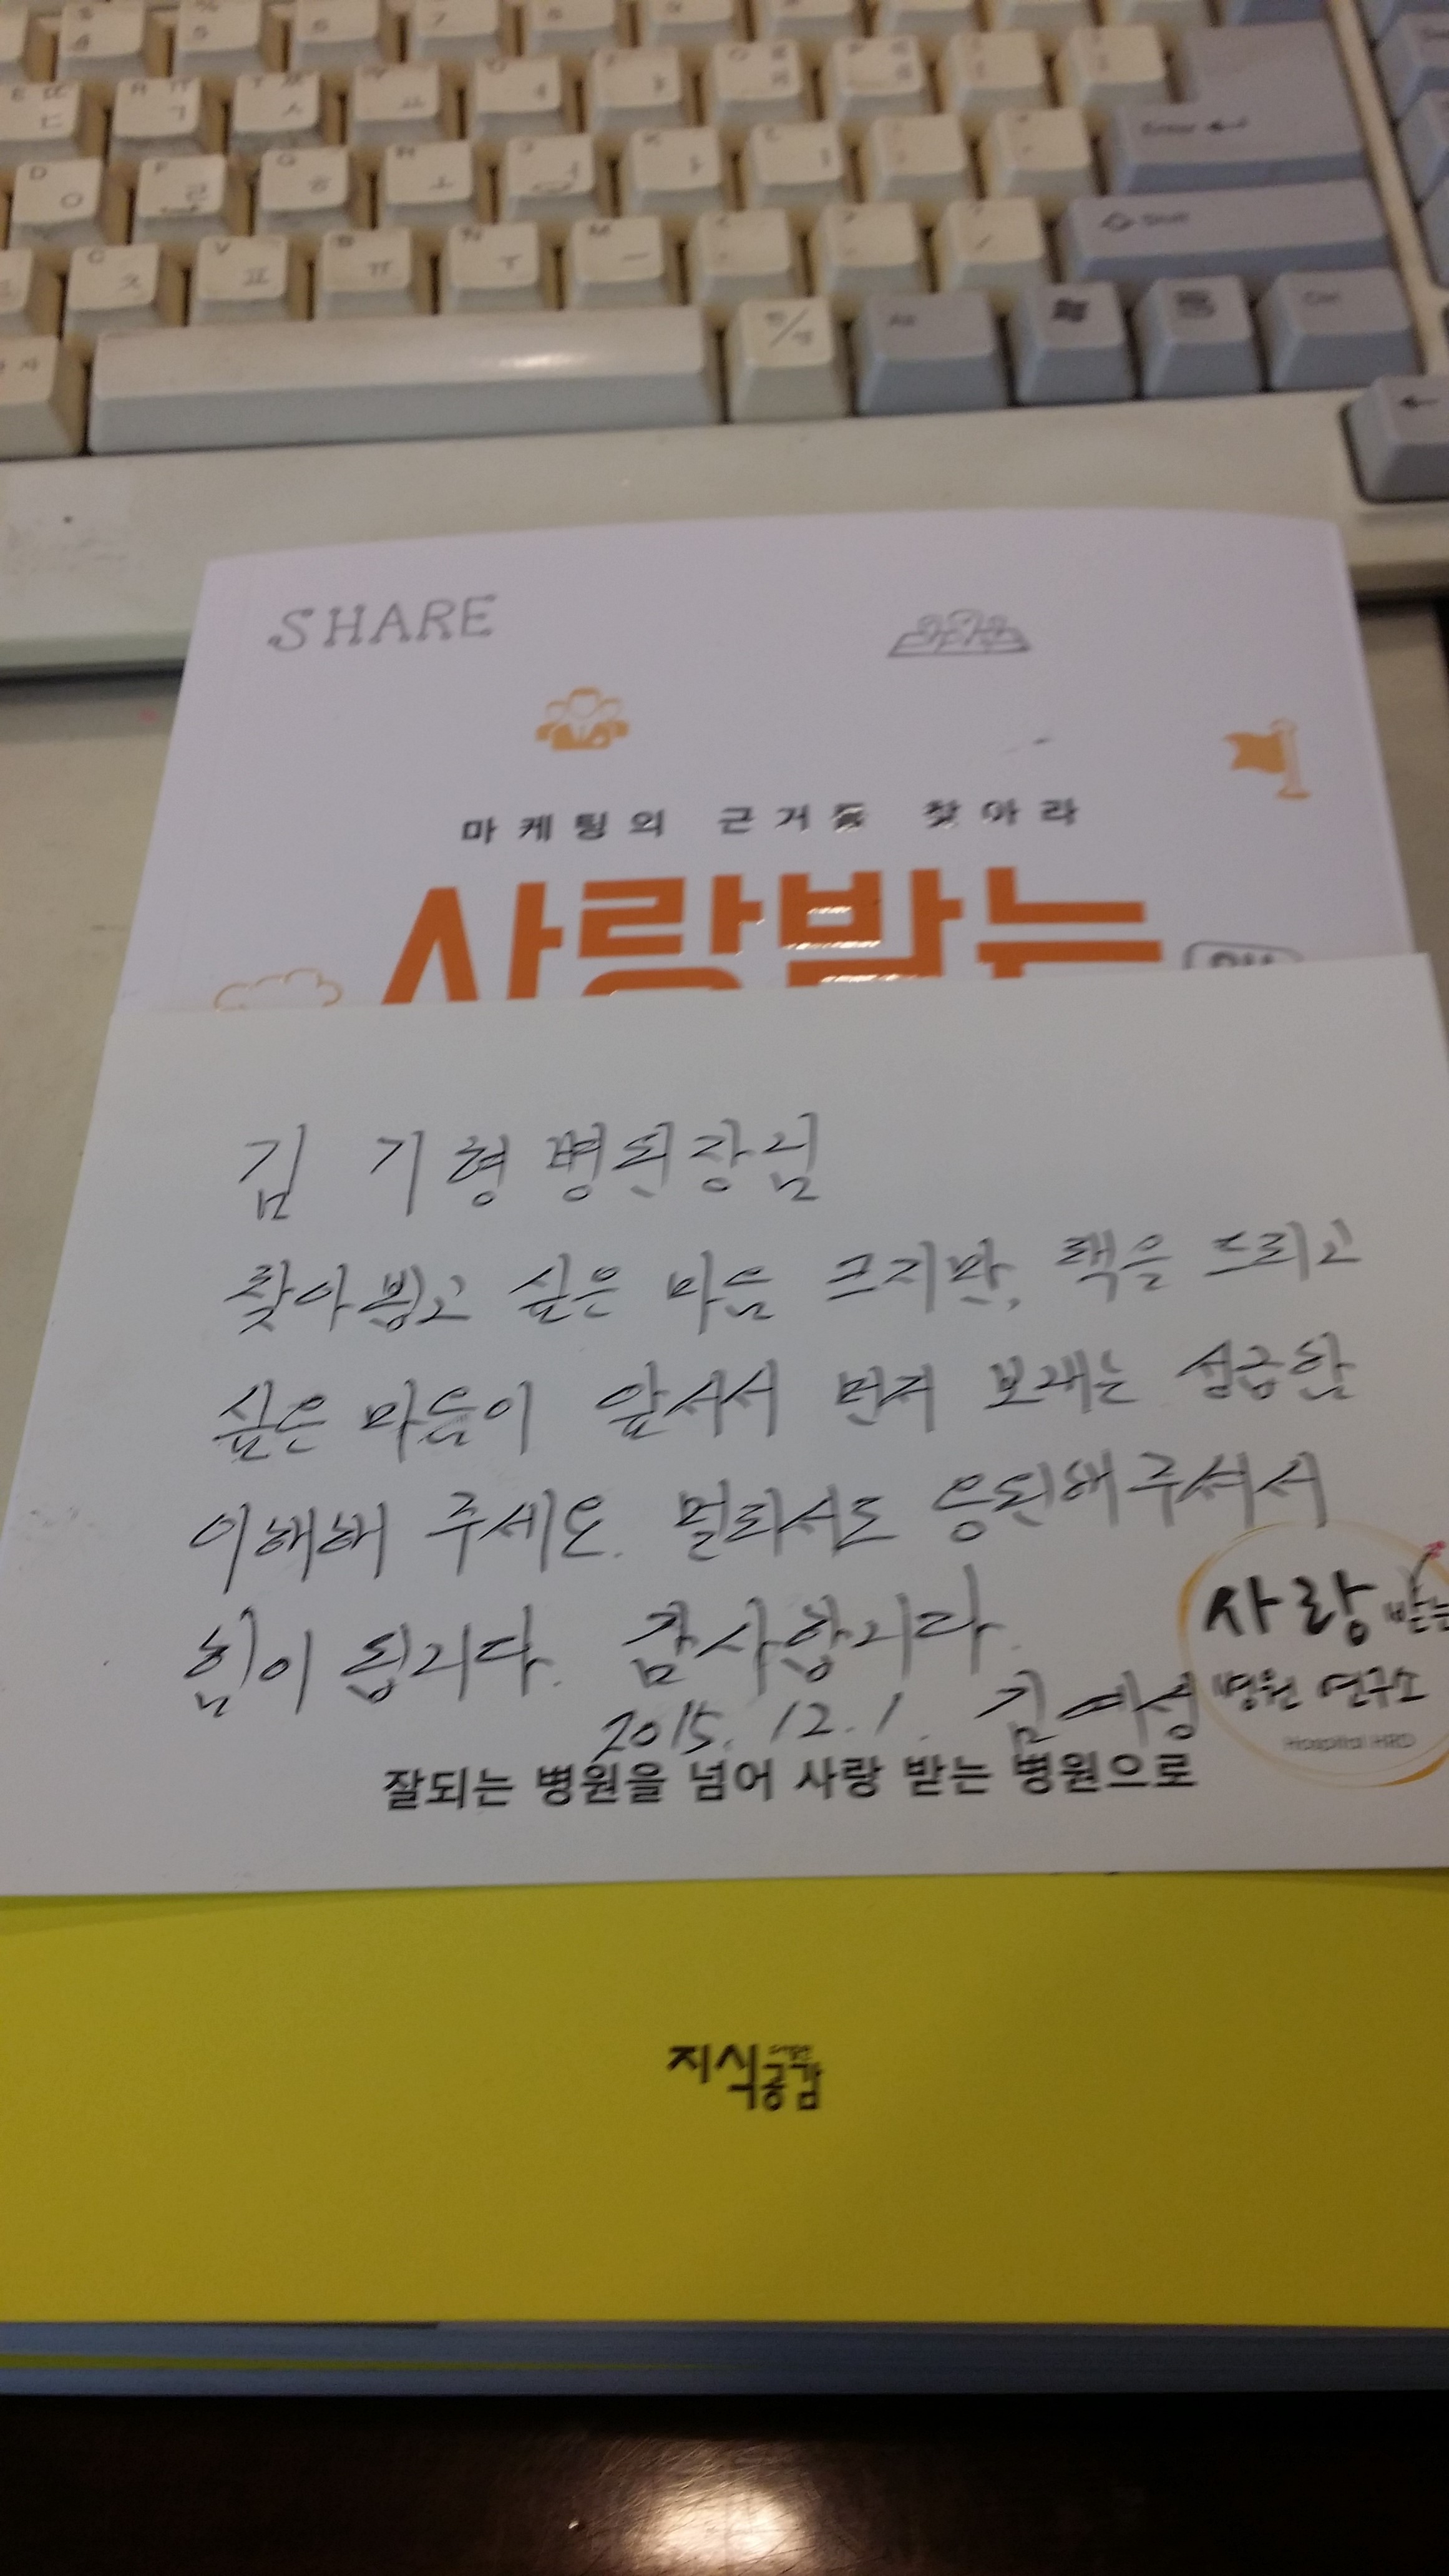 Enter
Shift
한/영
Alt
Ctrl
SHARE
마케팅의 근거를 찾아라
사랑받는
김 기형 병원장님
찾아뵙고 싶은 마음 크지만, 책을 드리고
싶은 마음이 앞서서 먼저 보내는 성급함
이해해 주세요. 멀리서도 응원해주셔서
힘이 됩니다. 감사합니다.
2015. 12. 1. 김예성
사랑 받는
병원 연구소
Hospital HRD
잘되는 병원을 넘어 사랑 받는 병원으로
지식공감